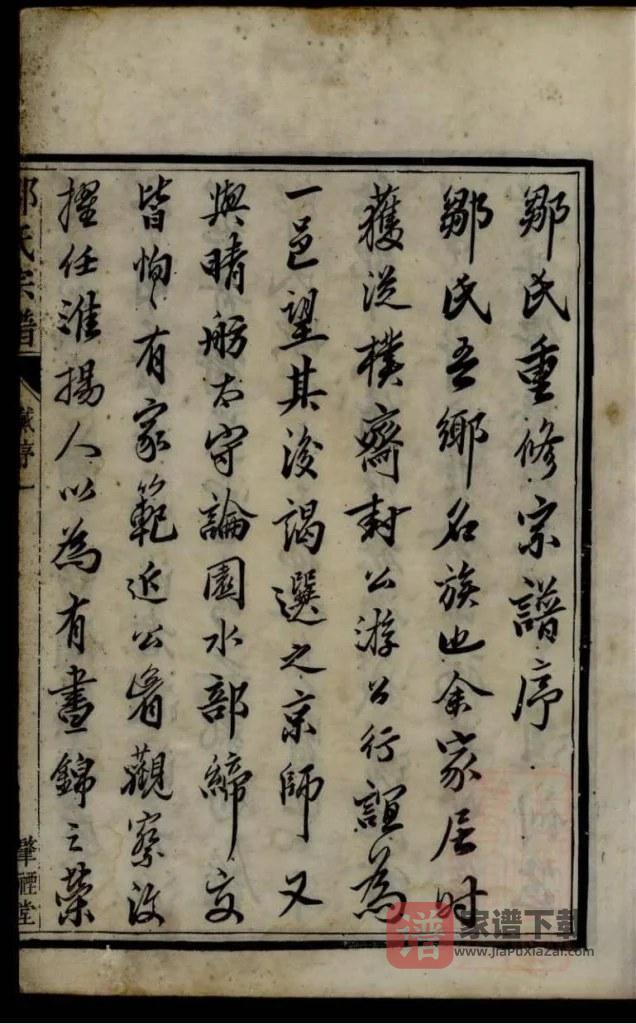 鄒氏重修宗譜序
鄒氏吾鄉名族也余家居时
獲從樸齋封公游公行誼為
一邑望其後謁選之京師又
與晴舫太守論園水部締交
皆恂〻有家範近公眉觀察改
擢任淮揚人以為有晝錦之榮
鄒氏宗譜
序一
肇禋堂
譜
家谱下载
www.jiapuxiazai.com